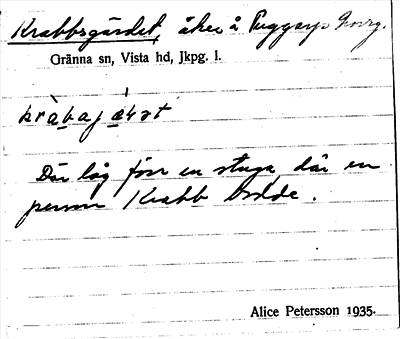 Krabbsgärdet, åker å Puggarp Norrg.
Gränna sn, Vista hd, Jkpg. l.
Där låg förr en stuga där en
person Krabb bodde.
Alice Petersson 1935.